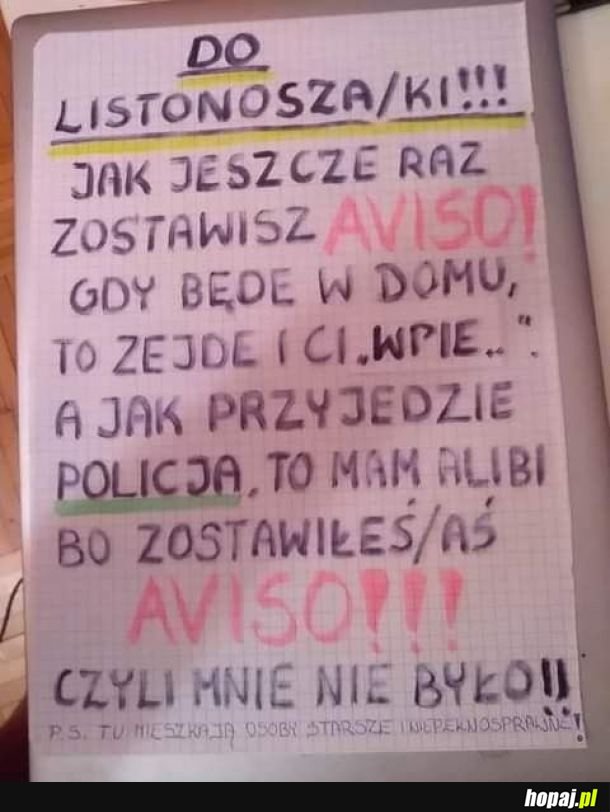 DO
LISTONOSZA/KI!!!
JAK JESZCZE RAZ
ZOSTAWISZ AVISO!
GDY BĘDE W DOMU,
TO ZEJDE I CI „WPIE..".
A JAK PRZYJEDZIE
POLICJA, TO MAM ALIBI
BO ZOSTAWIŁEŚ/AŚ
AVISO!!!
CZYLI MNIE NIE BYŁO!!
P.S. TU MIESZKAJĄ OSOBY STARSZE I NIEPEŁNOSPRAWNE!
hopaj.pl